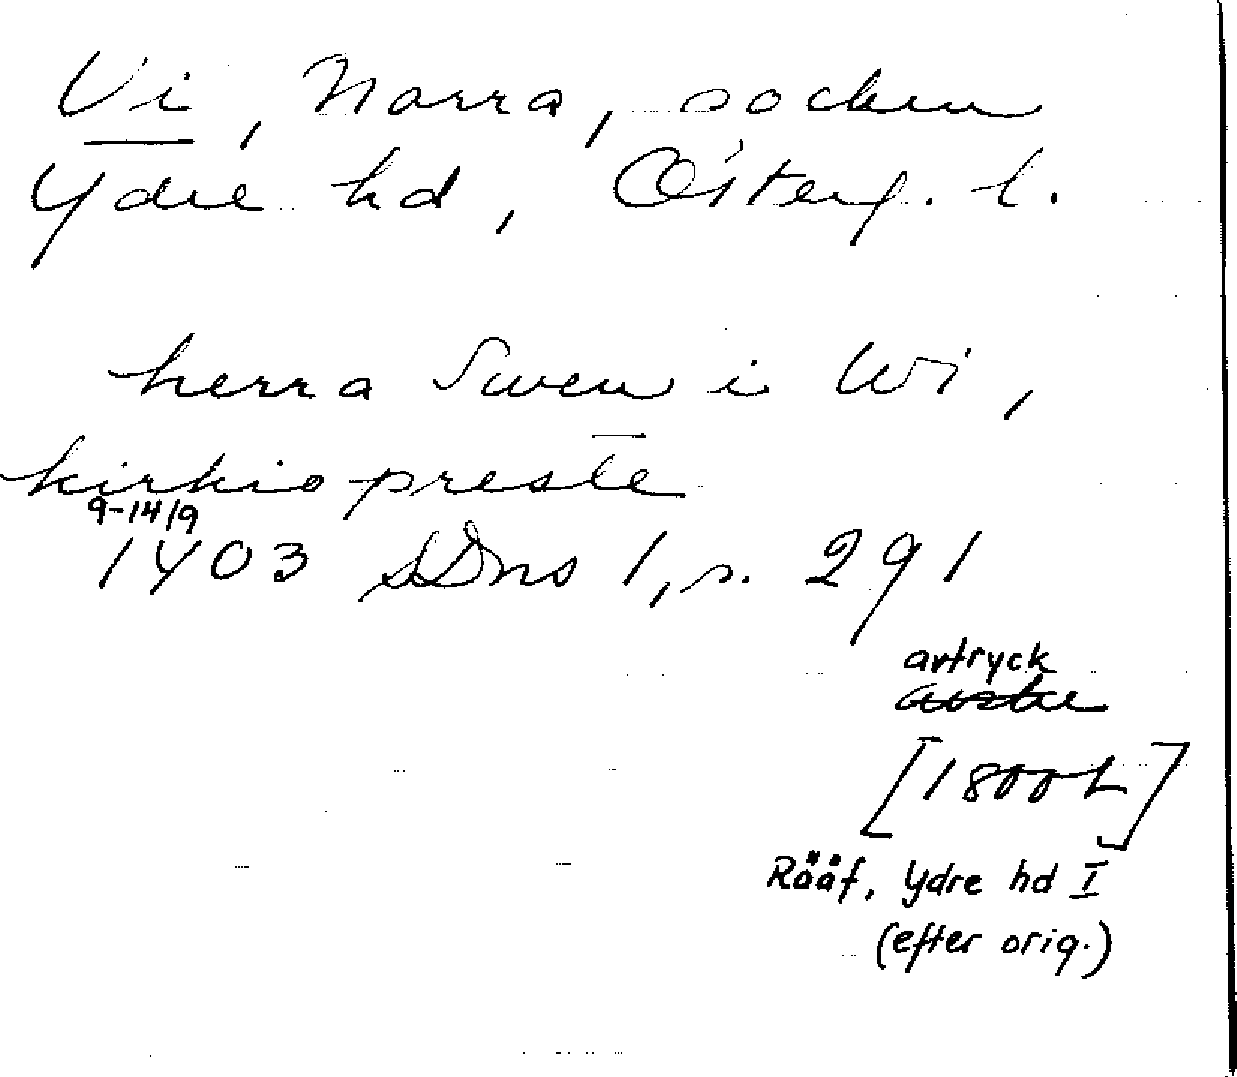 Vi, Norra, socken
Ydre hd, Österg. l.
herra Swen i Wi,
kirkio preste
9-14/9
1403 SDns 1, s. 291
avtryck
[1800t]
Rääf, Ydre hd I
(efter orig.)